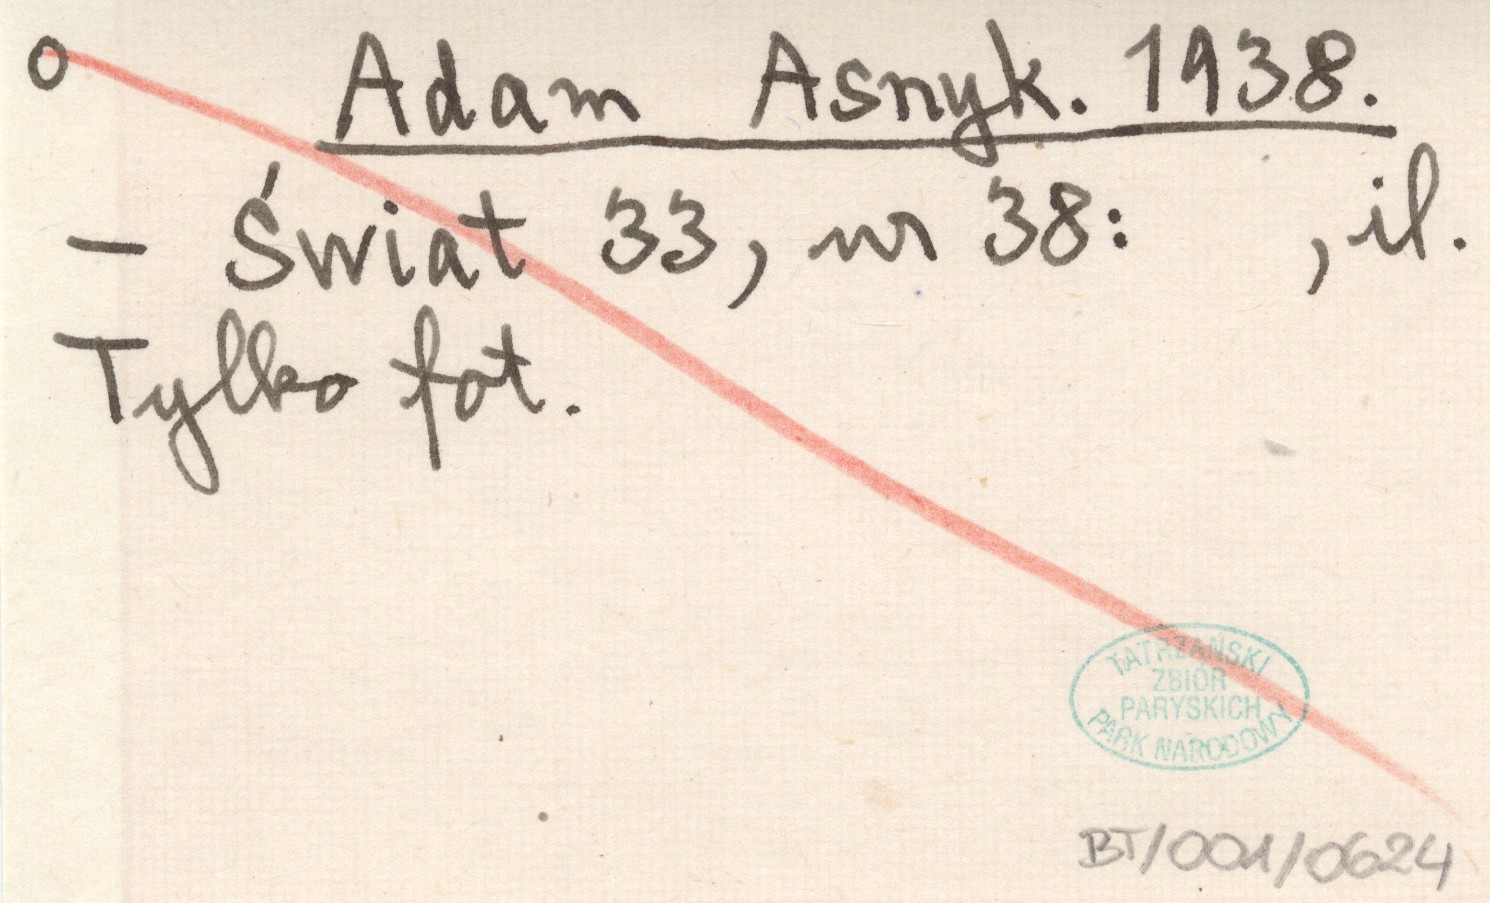 o Adam Asnyk. 1938.
– Świat 33, nr 38: , il.
Tylko fot.
TATRZAŃSKI
ZBIÓR
PARYSKICH
PARK NARODOWY
BT/001/0624